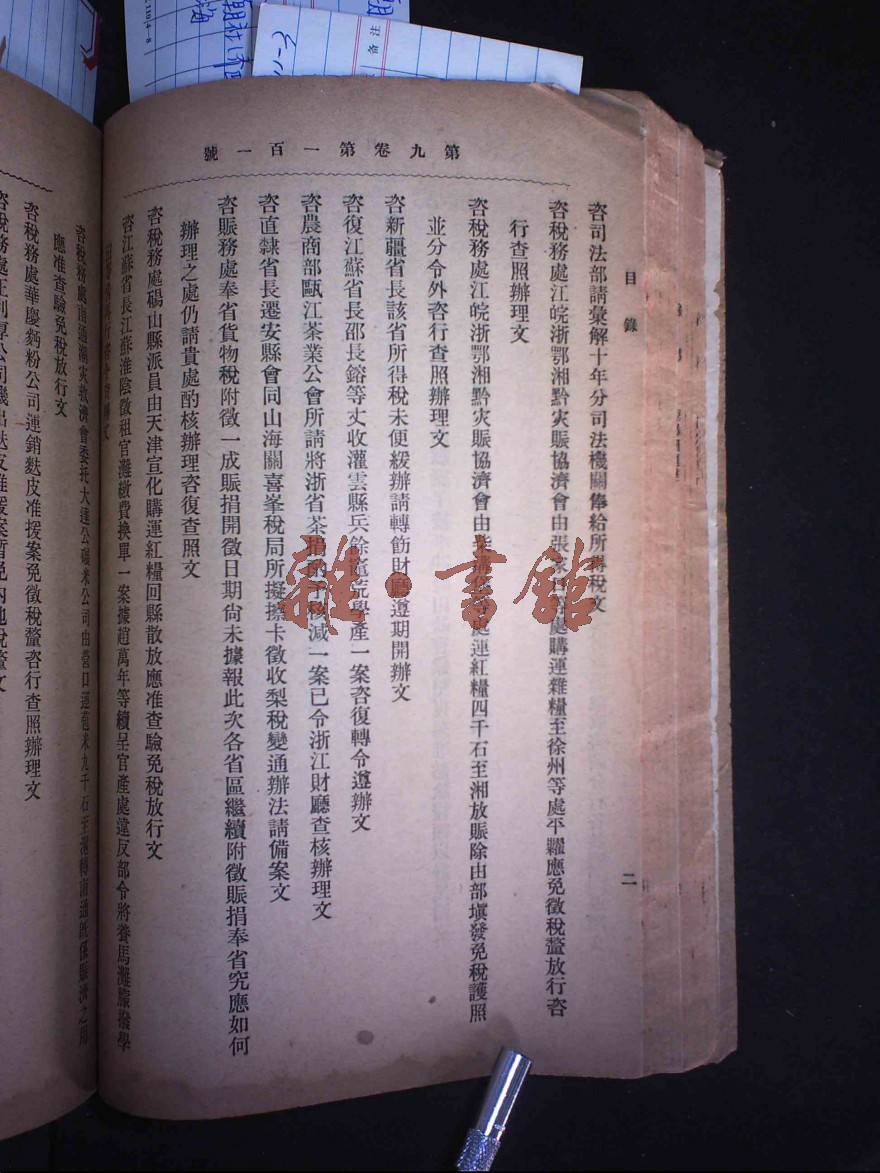 第九卷第一百一號
目錄
二
咨司法部請彙解十年分司法機關俸給所得稅文
咨稅務處江皖浙鄂湘黔灾賑協濟會由張家口等處購運雜糧至徐州等處平糶應免徵稅釐放行咨
行查照辦理文
咨稅務處江皖浙鄂湘黔灾賑協濟會由 處運紅糧四千石至湘放賑除由部塡發免稅護照
並分令外咨行查照辦理文
咨新疆省長該省所得稅未便緩辦請轉飭財廳遵期開辦文
咨復江蘇省長邵長鎔等丈收灌雲縣兵餘 荒學產一案咨復轉令遵辦文
咨農商部甌江茶業公會所請將浙省茶捐酌予核減一案已令浙江財廳查核辦理文
咨直隸省長遷安縣會同山海關喜峯稅局所擬擦卡徵收梨稅變通辦法請備案文
咨賑務處奉省貨物稅附徵一成賑捐開徵日期尙未據報此次各省區繼續附徵賑捐奉省究應如何
辦理之處仍請貴處酌核辦理咨復查照文
咨稅務處碭山縣派員由天津宣化購運紅糧回縣散放應准查驗免稅放行文
咨江蘇省長江蘇淮陰徵租官灘繳費換單一案據趙萬年等續呈官產處違反部令將養馬灘朦撥學
咨稅務處南通湖灾救濟會委托大達公碾米公司由營口運苞米九千石至滬轉南通旣係賑濟之用
應准查驗免稅放行文
咨稅務處華慶麪粉公司運銷麩皮准援案免徵稅釐咨行查照辦理文
雜·書館